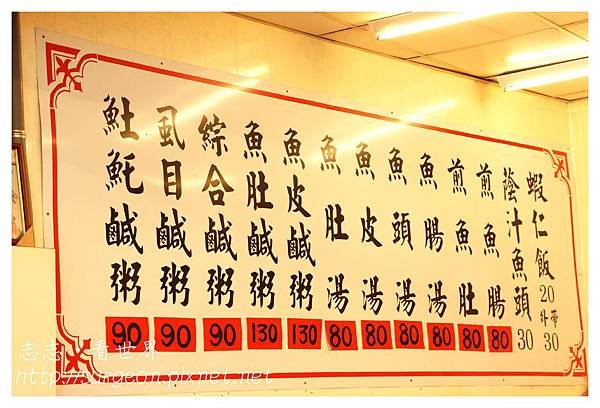 魠魠鹹粥 90
虱目鹹粥 90
綜合鹹粥 90
魚肚鹹粥 130
魚皮鹹粥 130
魚肚湯 80
魚皮湯 80
魚頭湯 80
魚腸湯 80
煎魚肚 80
煎魚腸 80
蔭汁魚頭 30
蝦仁飯 20 外帶 30
志志 看世界
http://surgeon.pixnet.net